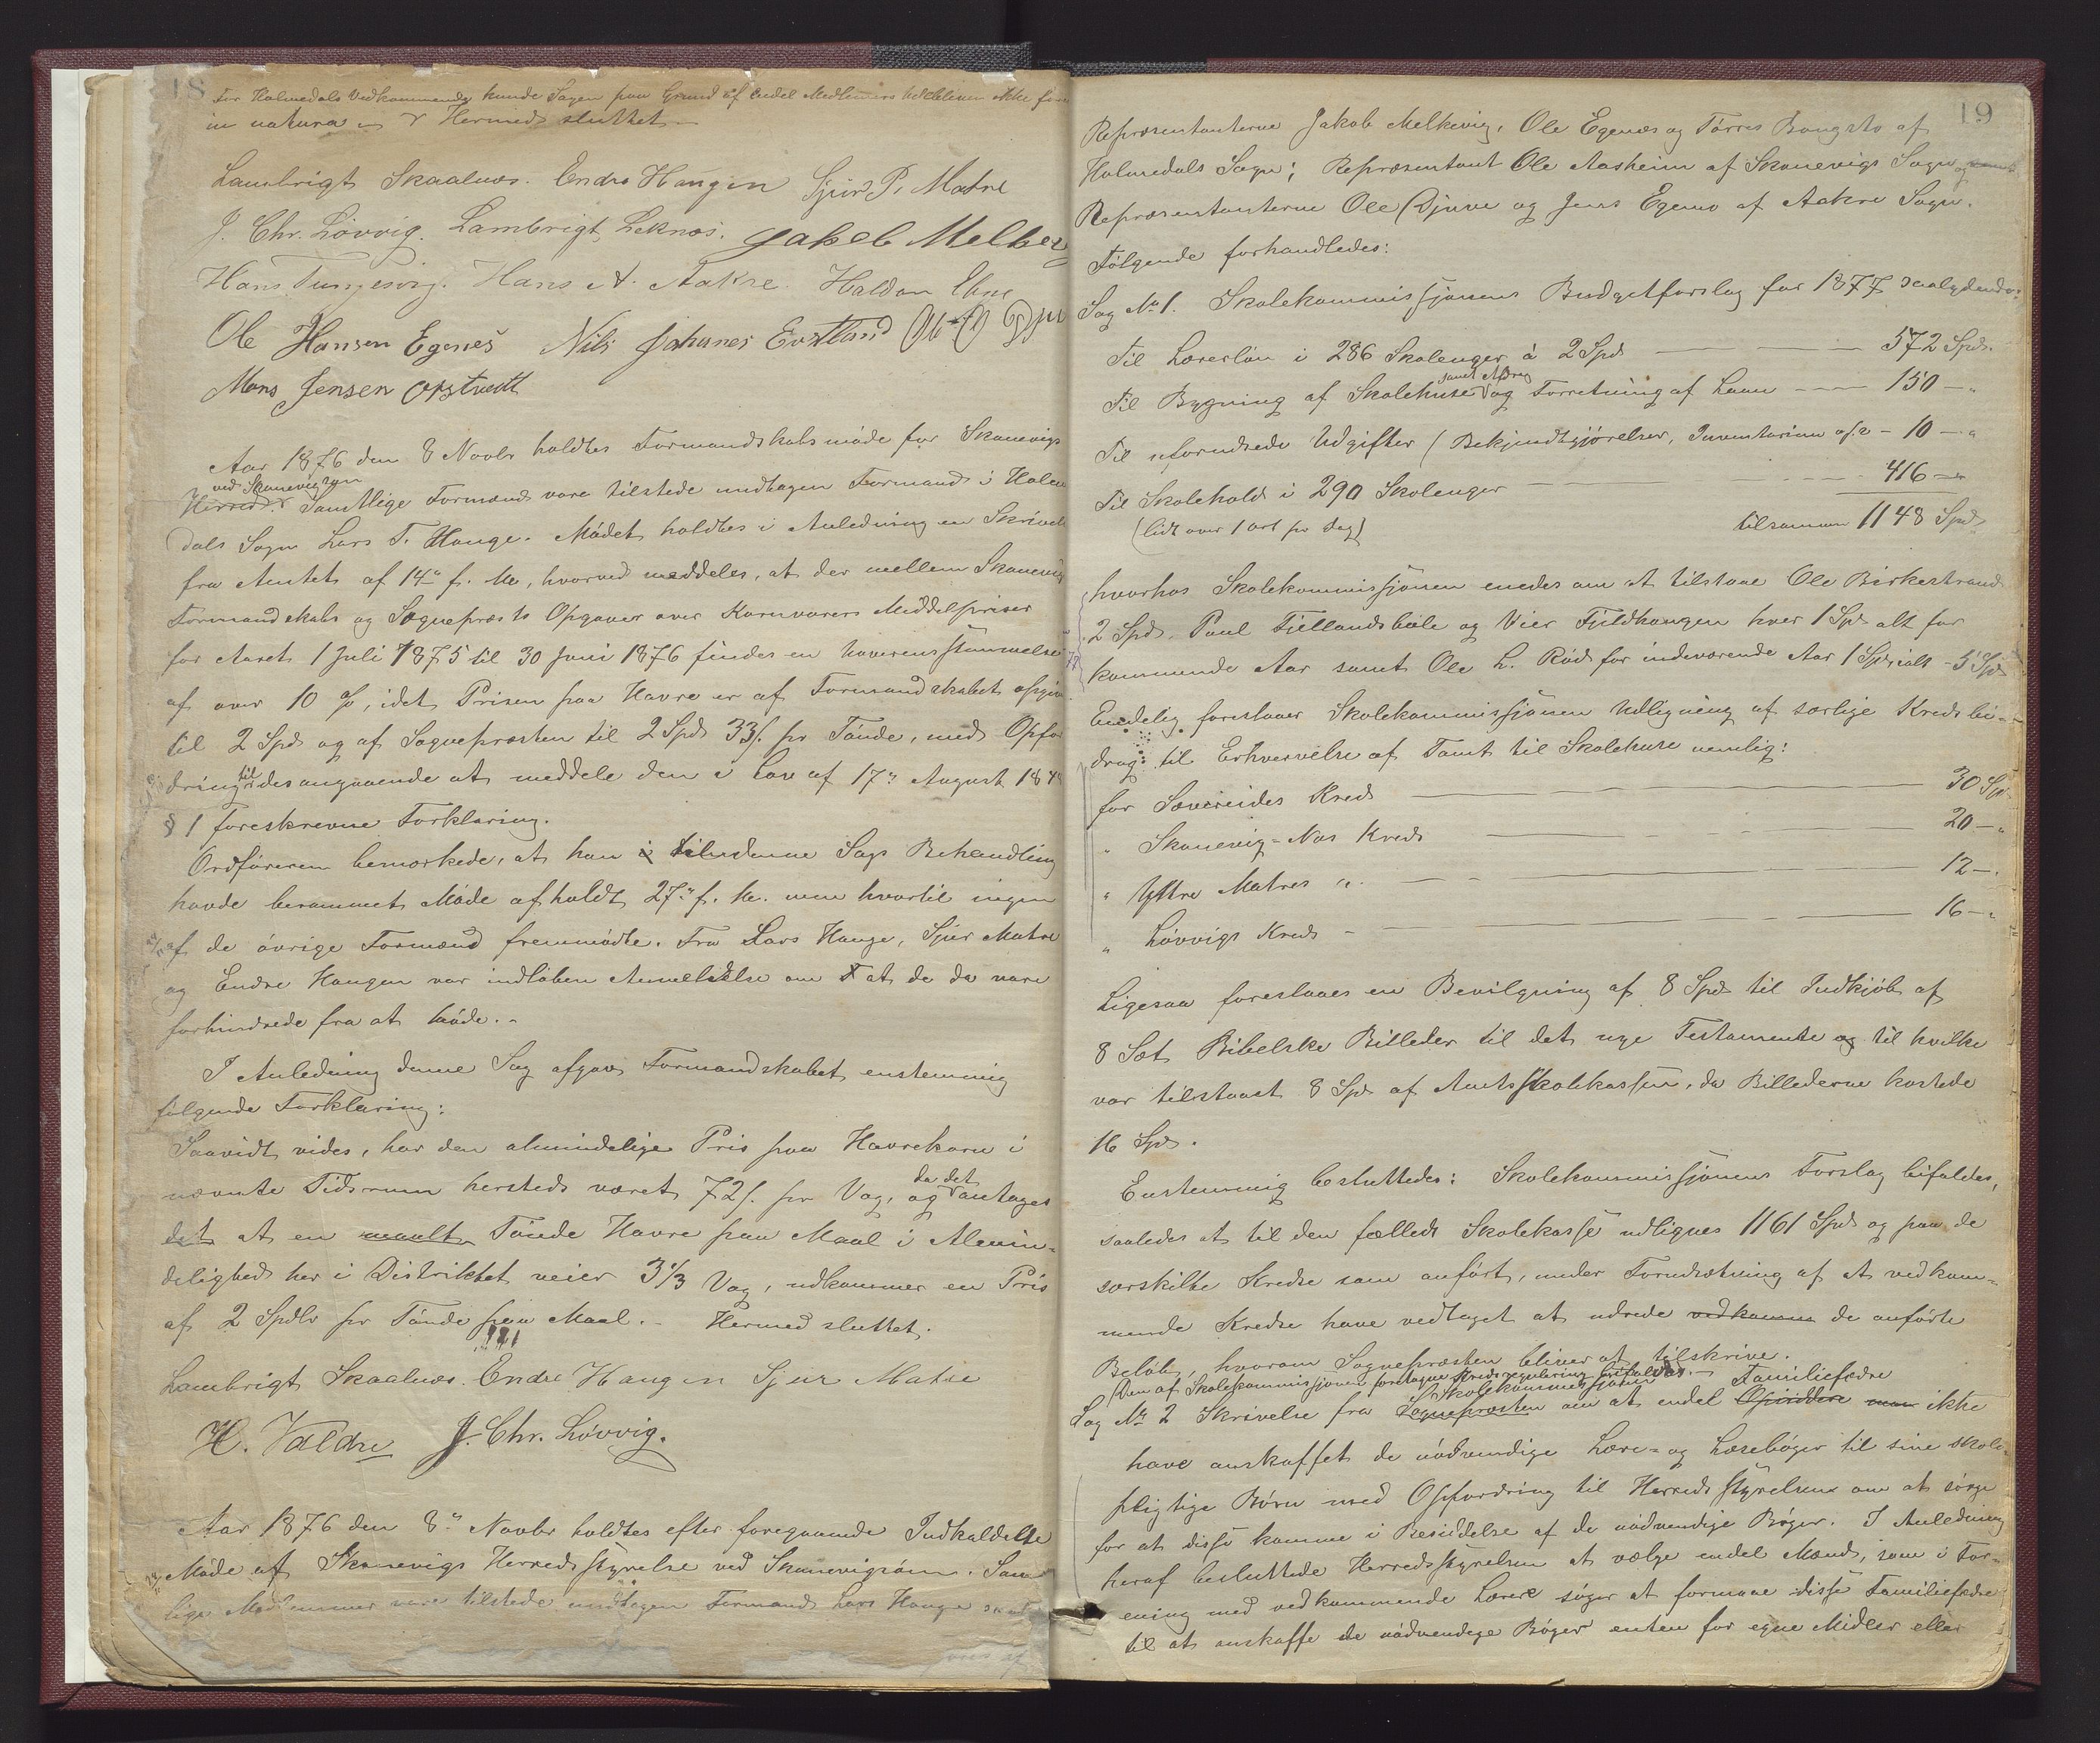 18
For Holmedals Vedkommende kunde Sagen paa Grund af endel Medlemmers Udeblivен ikke
in natura. Hermed sluttet.
Lambrigt Skaalnæs. Endre Haugen Sjur P. Matre
J. Chr. Løvvig. Lambrigt Leknæs. Jakob Melkev
Hans Tungesvig. Hans A. Aakre. Haldon Ebne
Ole Hansen Egenes Nils Johanes Evstland
Mons Jensen Opstvedt
Aar 1876 den 8 Novbr holdtes Formandskabsmøde for Skonevigs
ved Skonevigsøen
Herred. Samtlige Formænd vare tilstede undtagen Formand i Holme
dals Sogn Lars T. Hauge. Mødet holdtes i Anledning en Skrivel
fra Amtet af 14de f. M., hvorved meddeles, at der mellem Skonevigs
Formandskabs og Sognepræsts Opgaver over Kornvarers Middelpriser
for Aaret 1 Juli 1875 til 30 Juni 1876 findes en Uoverensstemmelse
af over 10 %, idet Prisen paa Havre er af Formandskabet opgiv
til 2 Spd og af Sognepræsten til 2 Spd 33 s. pr Tønde, med Opfo
dring til desangaaende at meddele den i Lov af 17de August 184
§ 1 foreskrevne Forklaring.
Ordføreren bemærkede, at han i til denne Sags Behandling
havde berammet Møde afholdt 27de f. M. men hvortil ingen
af de øvrige Formænd fremmødte. Fra Lars Hauge, Sjur Matre
og Endre Haugen var indløben Anmeldelse om at de da vare
forhindrede fra at møde.
I Anledning denne Sag afgav Formandskabet enstemmig
følgende Forklaring:
Saavidt vides, har den almindelige Pris paa Havrekorn i
nævnte Tidsrum hersteds været 72 s. pr Vog, og da det antages
det at en Tønde Havre paa Maal i Almin-
delighed her i Distriktet veier 3 1/3 Vog, udkommer en Pris
af 2 Spdlr pr Tønde paa Maal. – Hermed sluttet.
Lambrigt Skaalnæs. Endre Haugen Sjur Matre
H. Valdre J. Chr. Løvvig.
Aar 1876 den 8de Novbr holdtes efter foregaaende Indkaldelse
Møde af Skonevigs Herredsstyrelse ved Skonevigsøen. Sam
lige Medlemmer vare tilstede undtagen Formand Lars Hauge samt
19
Repræsentanterne Jakob Melkevig, Ole Egenæs og Tørres Bongsto af
Holmedals Sogn; Repræsentant Ole Aasheim af Skonevigs Sogn og samt
Repræsentanterne Ole Djuve og Jens Egemo af Aakre Sogn.
Følgende forhandledes:
Sag No 1. Skolekommissjonens Budgetforslag for 1877 saalydende:
Til Lærerløn i 286 Skoleuger à 2 Spd — 572 Spd.
Til Bygning af Skolehuse samt Afdrag og Forretning af Laan — 150 — "
Til uforudsede Udgifter (Bekjendtgjørelser, Inventarium osv. – 10 — "
Til Skolehold i 290 Skoleuger — 416 — "
(lidt over 1 ort pr Dag) tilsammen 1148 Spd
hvorhos Skolekommissjonen enedes om at tilstaae Ole Birkestrand
2 Spd, Poul Fjellandsbøle og Vier Fjeldhaugen hver 1 Spd alt for
kommende Aar samt Ole L. Rød for indeværende Aar 1 Spd, ialt – 5 Spd
Endelig foreslaaer Skolekommissjonen Udligning af særlige Kredsbi-
drag til Erhvervelse af Tomt til Skolehuse nemlig:
for Sævereides Kreds — 30 Spd
" Skonevig-Nes Kreds — 20 — "
" Yttre Matres " — 12 — "
" Løvvigs Kreds — 16 — "
Ligesaa foreslaaes en Bevilgning af 8 Spd til Indkjøb af
8 Sæt Bibelske Billeder til det nye Testamente og til hvilke
var tilstaaet 8 Spd af Amtsskolekassen, da Billederne kostede
16 Spd.
Enstemmig besluttedes: Skolekommissjonens Forslag bifaldes,
saaledes at til den fælleds Skolekasse udlignes 1161 Spd og paa de
særskilte Kredse som anført, under Forudsætning af at vedkom-
mende Kredse have vedtaget at udrede vedkomm de anførte
Beløb, hvorom Sognepræsten bliver at tilskrive.
Den af Skolekommissjonen foretagne Kredsregulering bifaldtes.
Sag No 2 Skrivelse fra Sognepræsten Skolekommissjonen om at endel Opsiddere Familiefædre ikke
have anskaffet de nødvendige Lære- og Læsebøger til sine skole-
pligtige Børn med Opfordring til Herredsstyrelsen om at sørge
for at disse komme i Besiddelse af de nødvendige Bøger. I Anledning
heraf besluttede Herredsstyrelsen at vælge endel Mænd, som i For-
ening med vedkommende Lærere søger at formaae disse Familiefædre
til at anskaffe de nødvendige Bøger enten for egne Midler eller